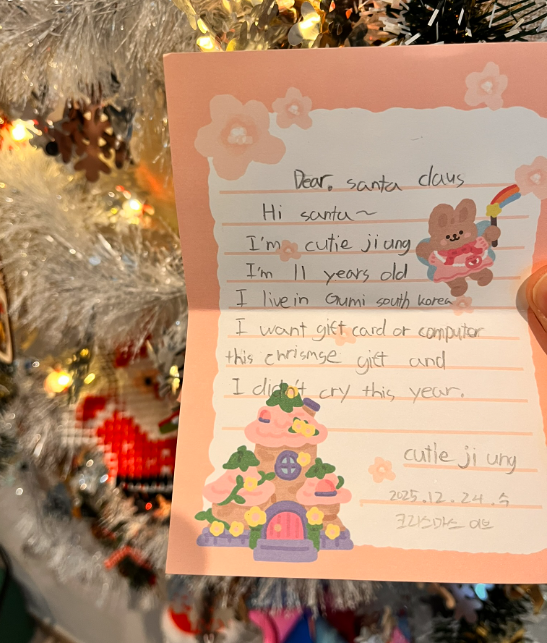 Dear. santa claus
Hi santa~
I'm cutie jiung
I'm 11 years old
I live in Gumi south korea
I want gift card or computor
this chrismse gift and
I didn't cry this year.
cutie ji ung
2025.12.24.수
크리스마스 이브